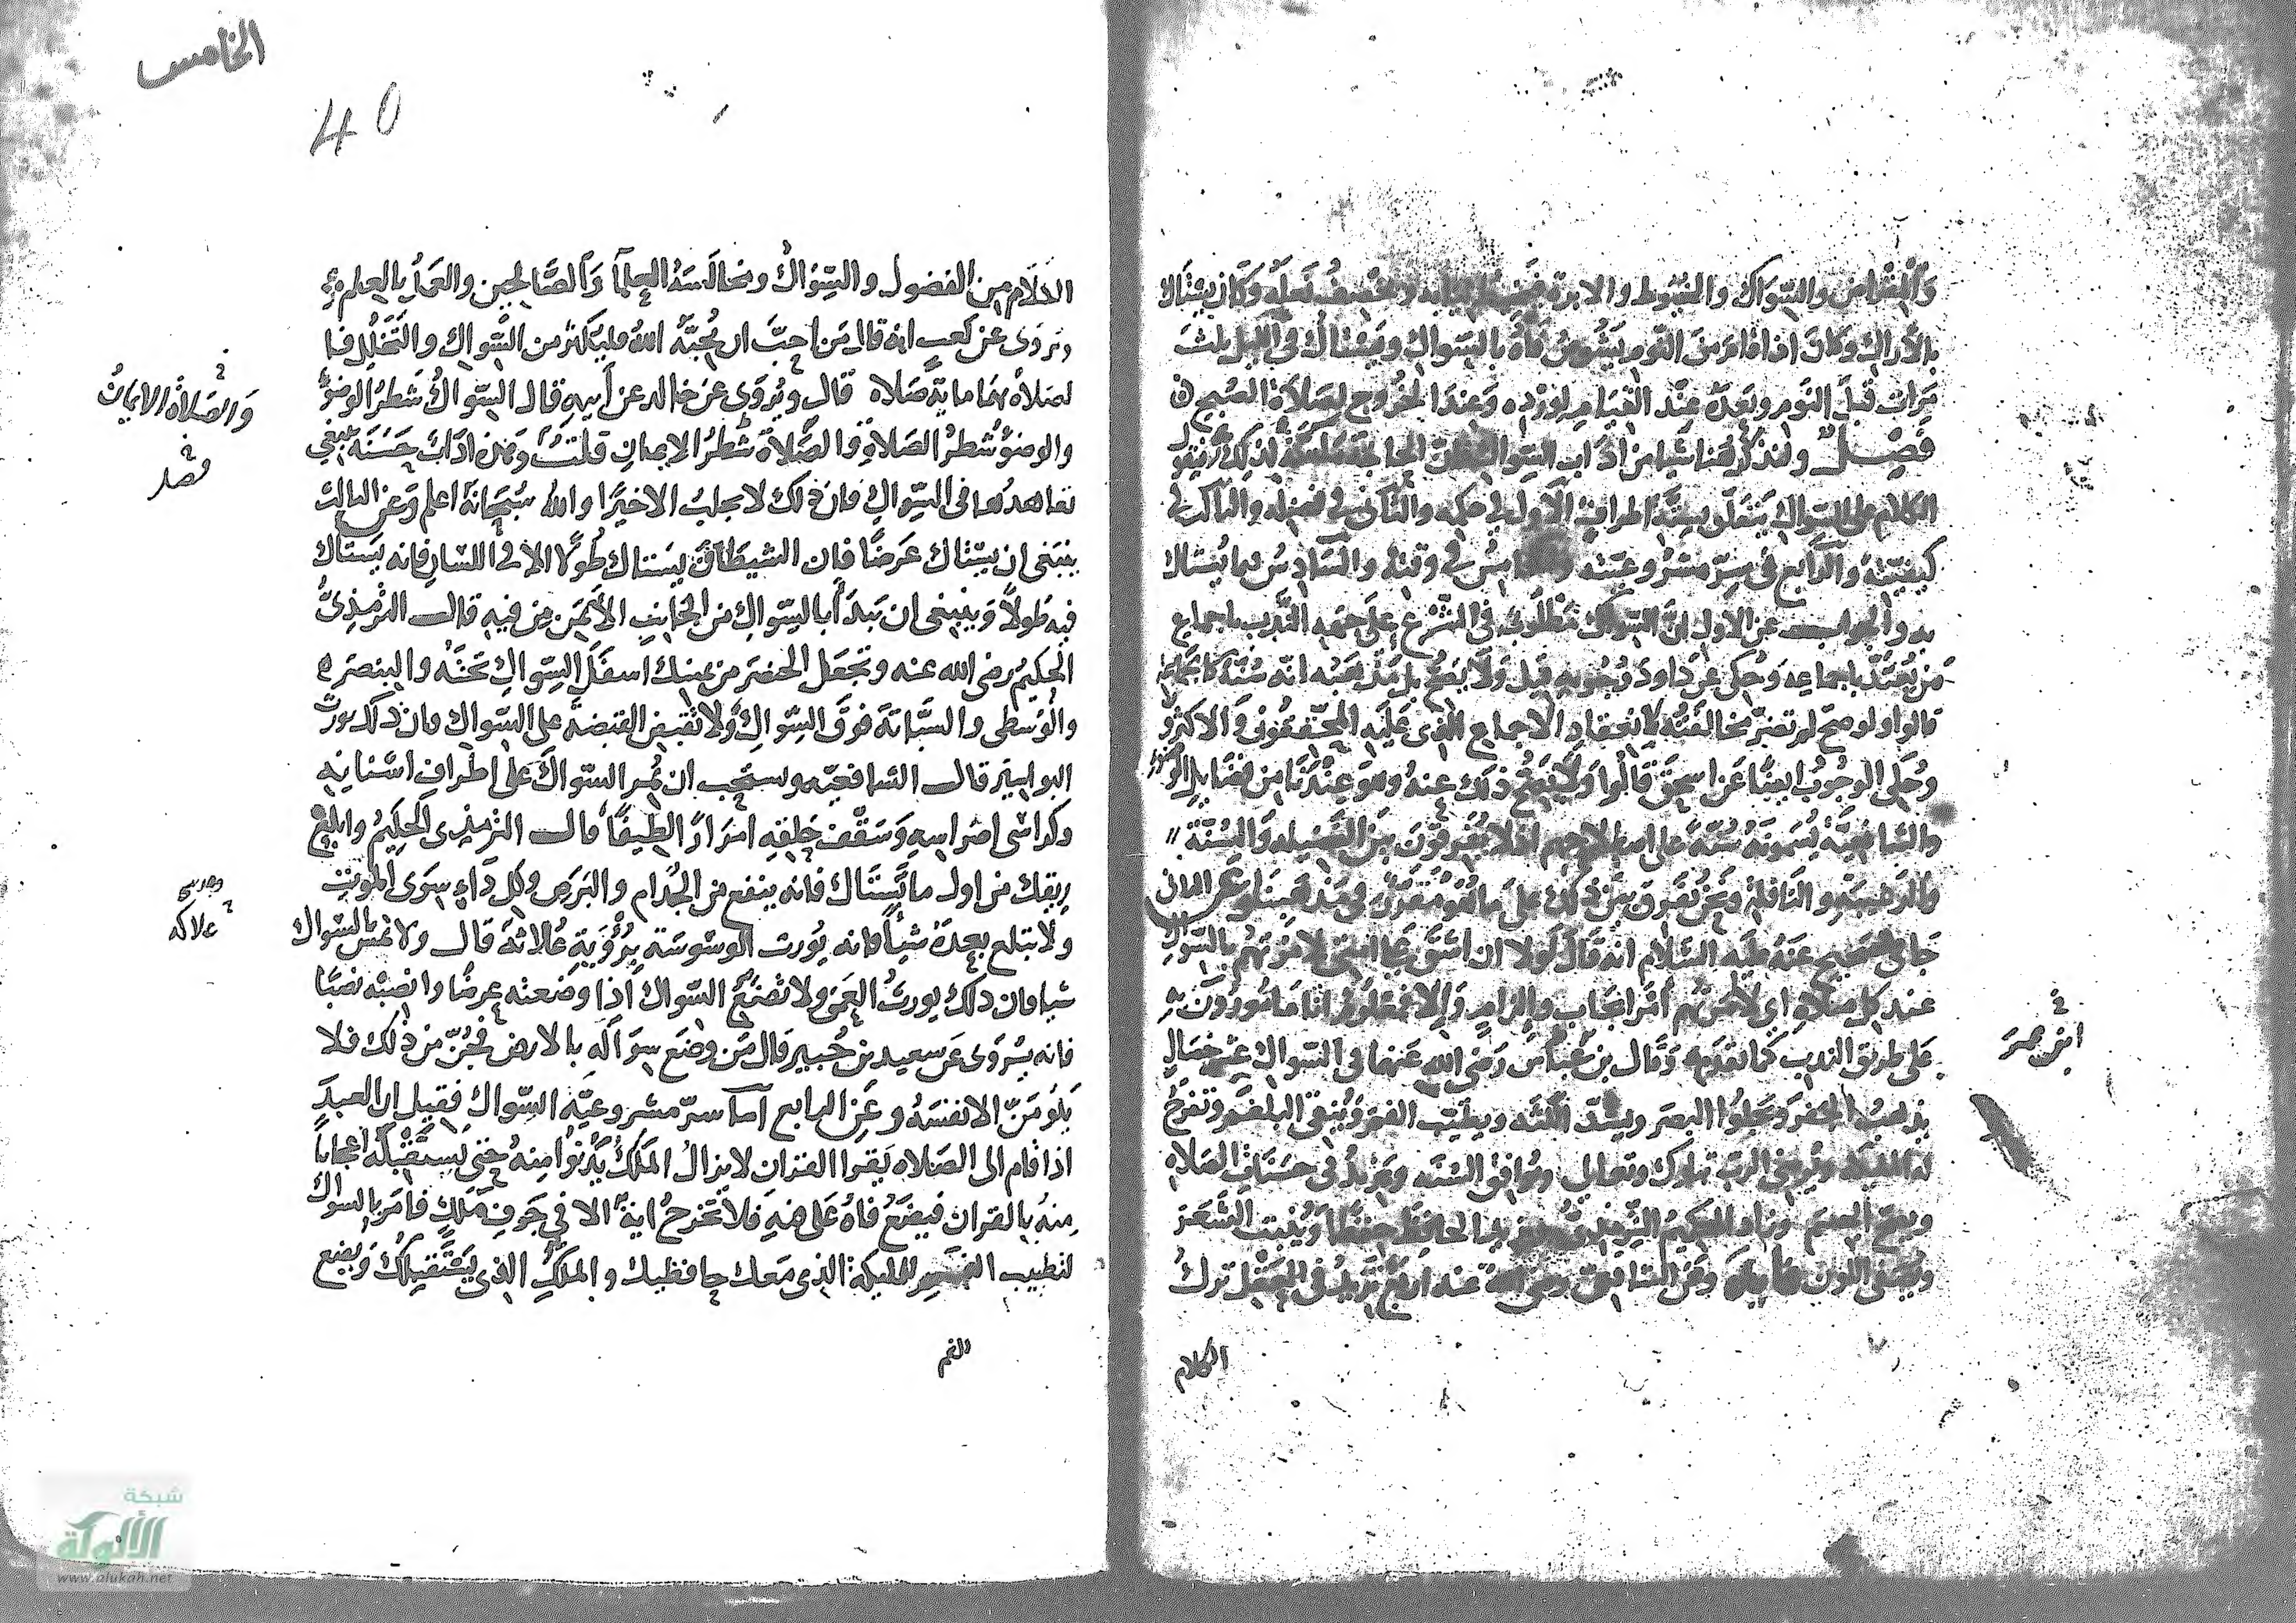 والمقراض والسواك والخيوط والابرة فيخيط ثيابه ويخصف نعله وكان يستاك
بالاراك وكان اذا قام من النوم يشوص فاه بالسواك ويستاك في الليل ثلث
مرات قبل النوم وبعده عند القيام لورده وعند الخروج لصلاة الصبح
فصل ولنذكر هنا شيا من اداب السواك فان الحاجة ماسة لذلك فنقول
الكلام على السواك يتعلق بستة اطراف الاول في حكمه والثاني في فضله والثالث في
كيفيته والرابع في سر مشروعيته والخامس في وقته والسادس فيما يستاك
به والجواب عن الاول ان السواك مطلوب في الشرع على جهة الندب باجماع
من يعتد باجماعه وحكى عن داود وجوبه قيل ولا يصح بل مذهبه انه سنة كالجماعة
قالوا ولو صح لم تضر مخالفته لانعقاد الاجماع الذي عليه المحققون والاكثرون
وحكى الوجوب ايضا عن اسحق قالوا ولا يصح ذلك عنه وهو عندنا من فضايل الوضوء
والشافعية يسمونه سنة على اصطلاحهم اذ لا يفرقون بين الفضيله والسنة
والرغيبة والنافلة ونحن نفرق بين ذلك على ما هو مقرر في مذهبنا وعن الثاني
جا في الصحيح عنه عليه السلام انه قال لولا ان اشق على امتي لامرتهم بالسواك
عند كل صلاة اي لامرتهم امر ايجاب والزام والا فمعلوم انا مامورون
على طريق الندب كما تقدم وقال بن عباس رضي الله عنهما في السواك عشر خصال
يذهب الحفر ويجلوا البصر ويشد اللثه ويطيب الفم وينقي البلغم وتفرح
له الملائكة ويرضي الرب تبارك وتعالى ويوافق السنه ويزيد في حسنات الصلاة
ويصح الجسم وزاد الحكيم الترمذي ويزيد الحافظ حفظا وينبت الشعر
ويصفي اللون وعن الشافعي رضي الله عنه اربع تزيد في العقل ترك
الكلام
ابن عمر
الخامس
40
الكلام من الفضول والسواك ومجالسة العلما والصالحين والعمل بالعلم
وتروى عن كعب انه قال من احب ان يحبه الله فليكثر من السواك والتخلل فيا
لصلاة بهما ماية صلاه قال ويروى عن خالد عن ابيه قال السواك شطر الوضو
والوضو شطر الصلاة والصلاة شطر الايمان قلت وهذه اداب حسنة ينبغي
تعاهدها في السواك فان ذلك لا يجلب الا خيرا والله سبحانه اعلم وعن الثالث
ينبغي ان يستاك عرضا فان الشيطان يستاك طولا الا في اللسان فانه يستاك
فيه طولا وينبغي ان يبدا بالسواك من الجانب الايمن من فيه قال الترمذي
الحكيم رضي الله عنه وتجعل الخنصر من يمينك اسفل السواك تحته والبنصر
والوسطى والسبابة فوق السواك ولا تقبض القبضة على السواك فان ذلك يورث
البواسير قال الشافعيه ويستحب ان يمر السواك على اطراف اسنانه
وكراسي اضراسه وسقف حلقه امرارا لطيفا قال الترمذي الحكيم وابلع
ريقك من اول ما تستاك فانه ينفع من الجذام والبرص وكل داء سوى الموت
ولا تبلع بعده شيأ فانه يورث الوسوسة يرويه علاثة قال ولا تمص بالسواك
شيا فان ذلك يورث العمى ولا تضع السواك اذا وضعته عرضا وانصبه نصبا
فانه يروى عن سعيد بن جبير قال من وضع سواكه بالارض فجن من ذلك فلا
يلومن الا نفسه وعن الرابع اما سر مشروعية السواك فقيل ان العبد
اذا قام الى الصلاة يقرا القران لا يزال الملك يدنوا منه حتى يستقبله اعجابا
منه بالقران فيضع فاه على فيه فلا تخرج اية الا في جوف ملك فامر بالسواك
لتطيب الفم للمليكة الذي معك حافظيك والملك الذي يستقبلك ويضع
الفم
والصلاة الايمان
فصل
علاكه
شبكة
الألوكة
www.alukah.net